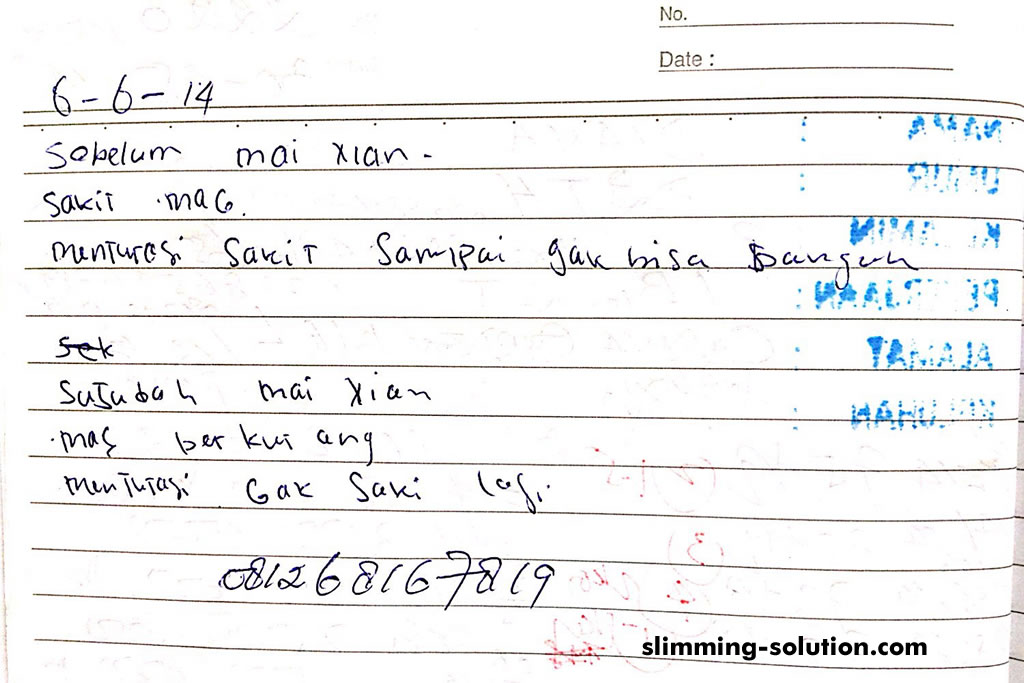 No.
Date :
6-6-14
Sebelum mai xian.
Sakit mag.
menturasi Sakit Sampai gak bisa bangun
NAMA :
UMUR :
KELAMIN
PEKERJAAN :
ALAMAT :
KELUHAN :
Sek
Sesudah mai xian
mag berkurang
menturasi Gak Saki lagi.
081268167819
slimming-solution.com